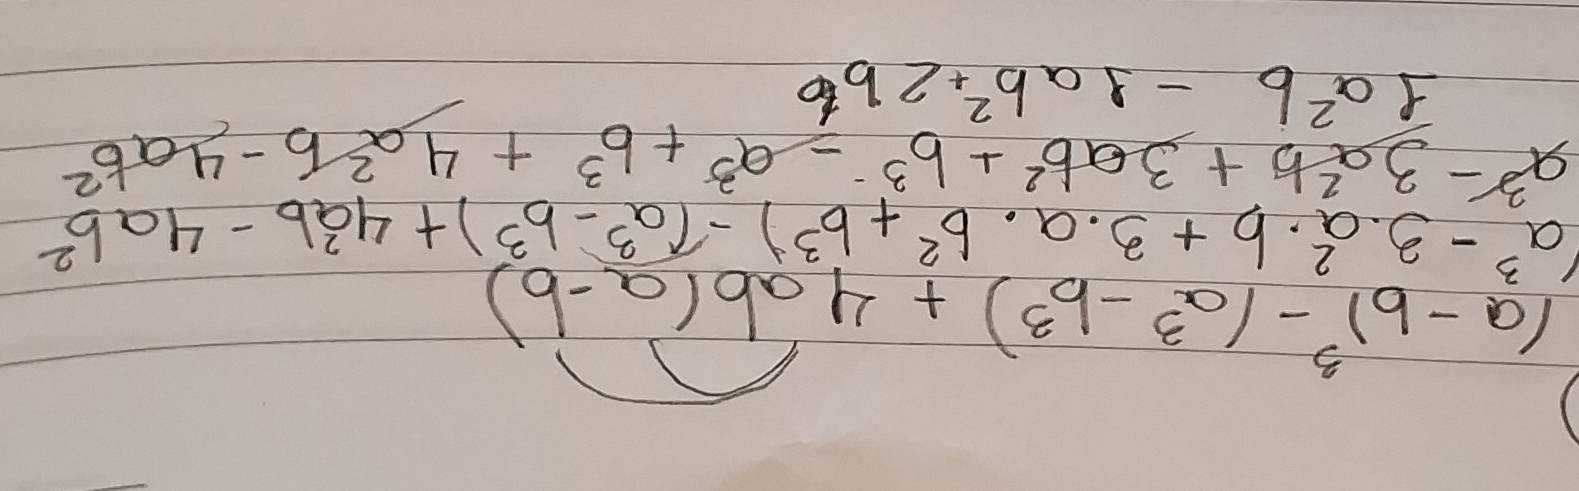 (a-b)³ - (a³-b³) + 4ab(a-b)
(a³ - 3·a²·b + 3·a·b² + b³) - (a³-b³) + 4a²b - 4ab²
a³ - 3a²b + 3ab² + b³ - a³ + b³ + 4a²b - 4ab²
1a²b - 1ab² + 2b